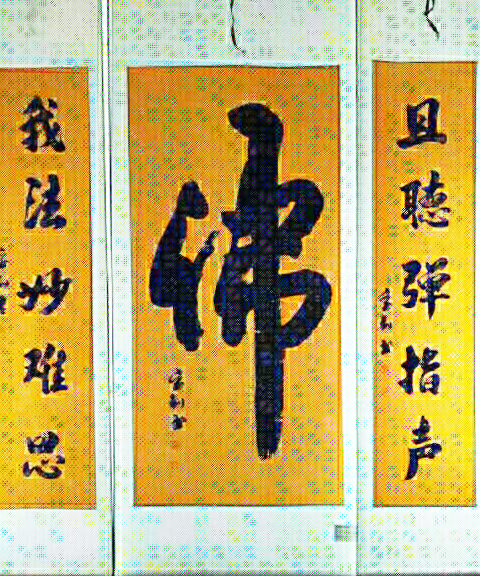 且聽弹指声
佛
我法妙难思